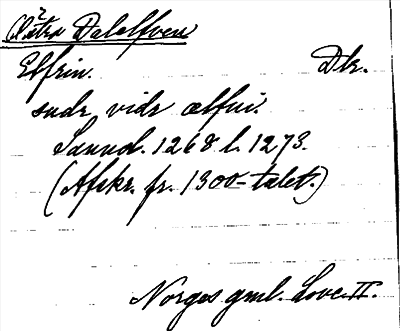 Östra Dalelfven
Elfrin. Dlr.
sudr vidr ælfui.
Sannol. 1268 l. 1273.
(Afskr. fr. 1300-talet.)
Norges gml. Love. II.